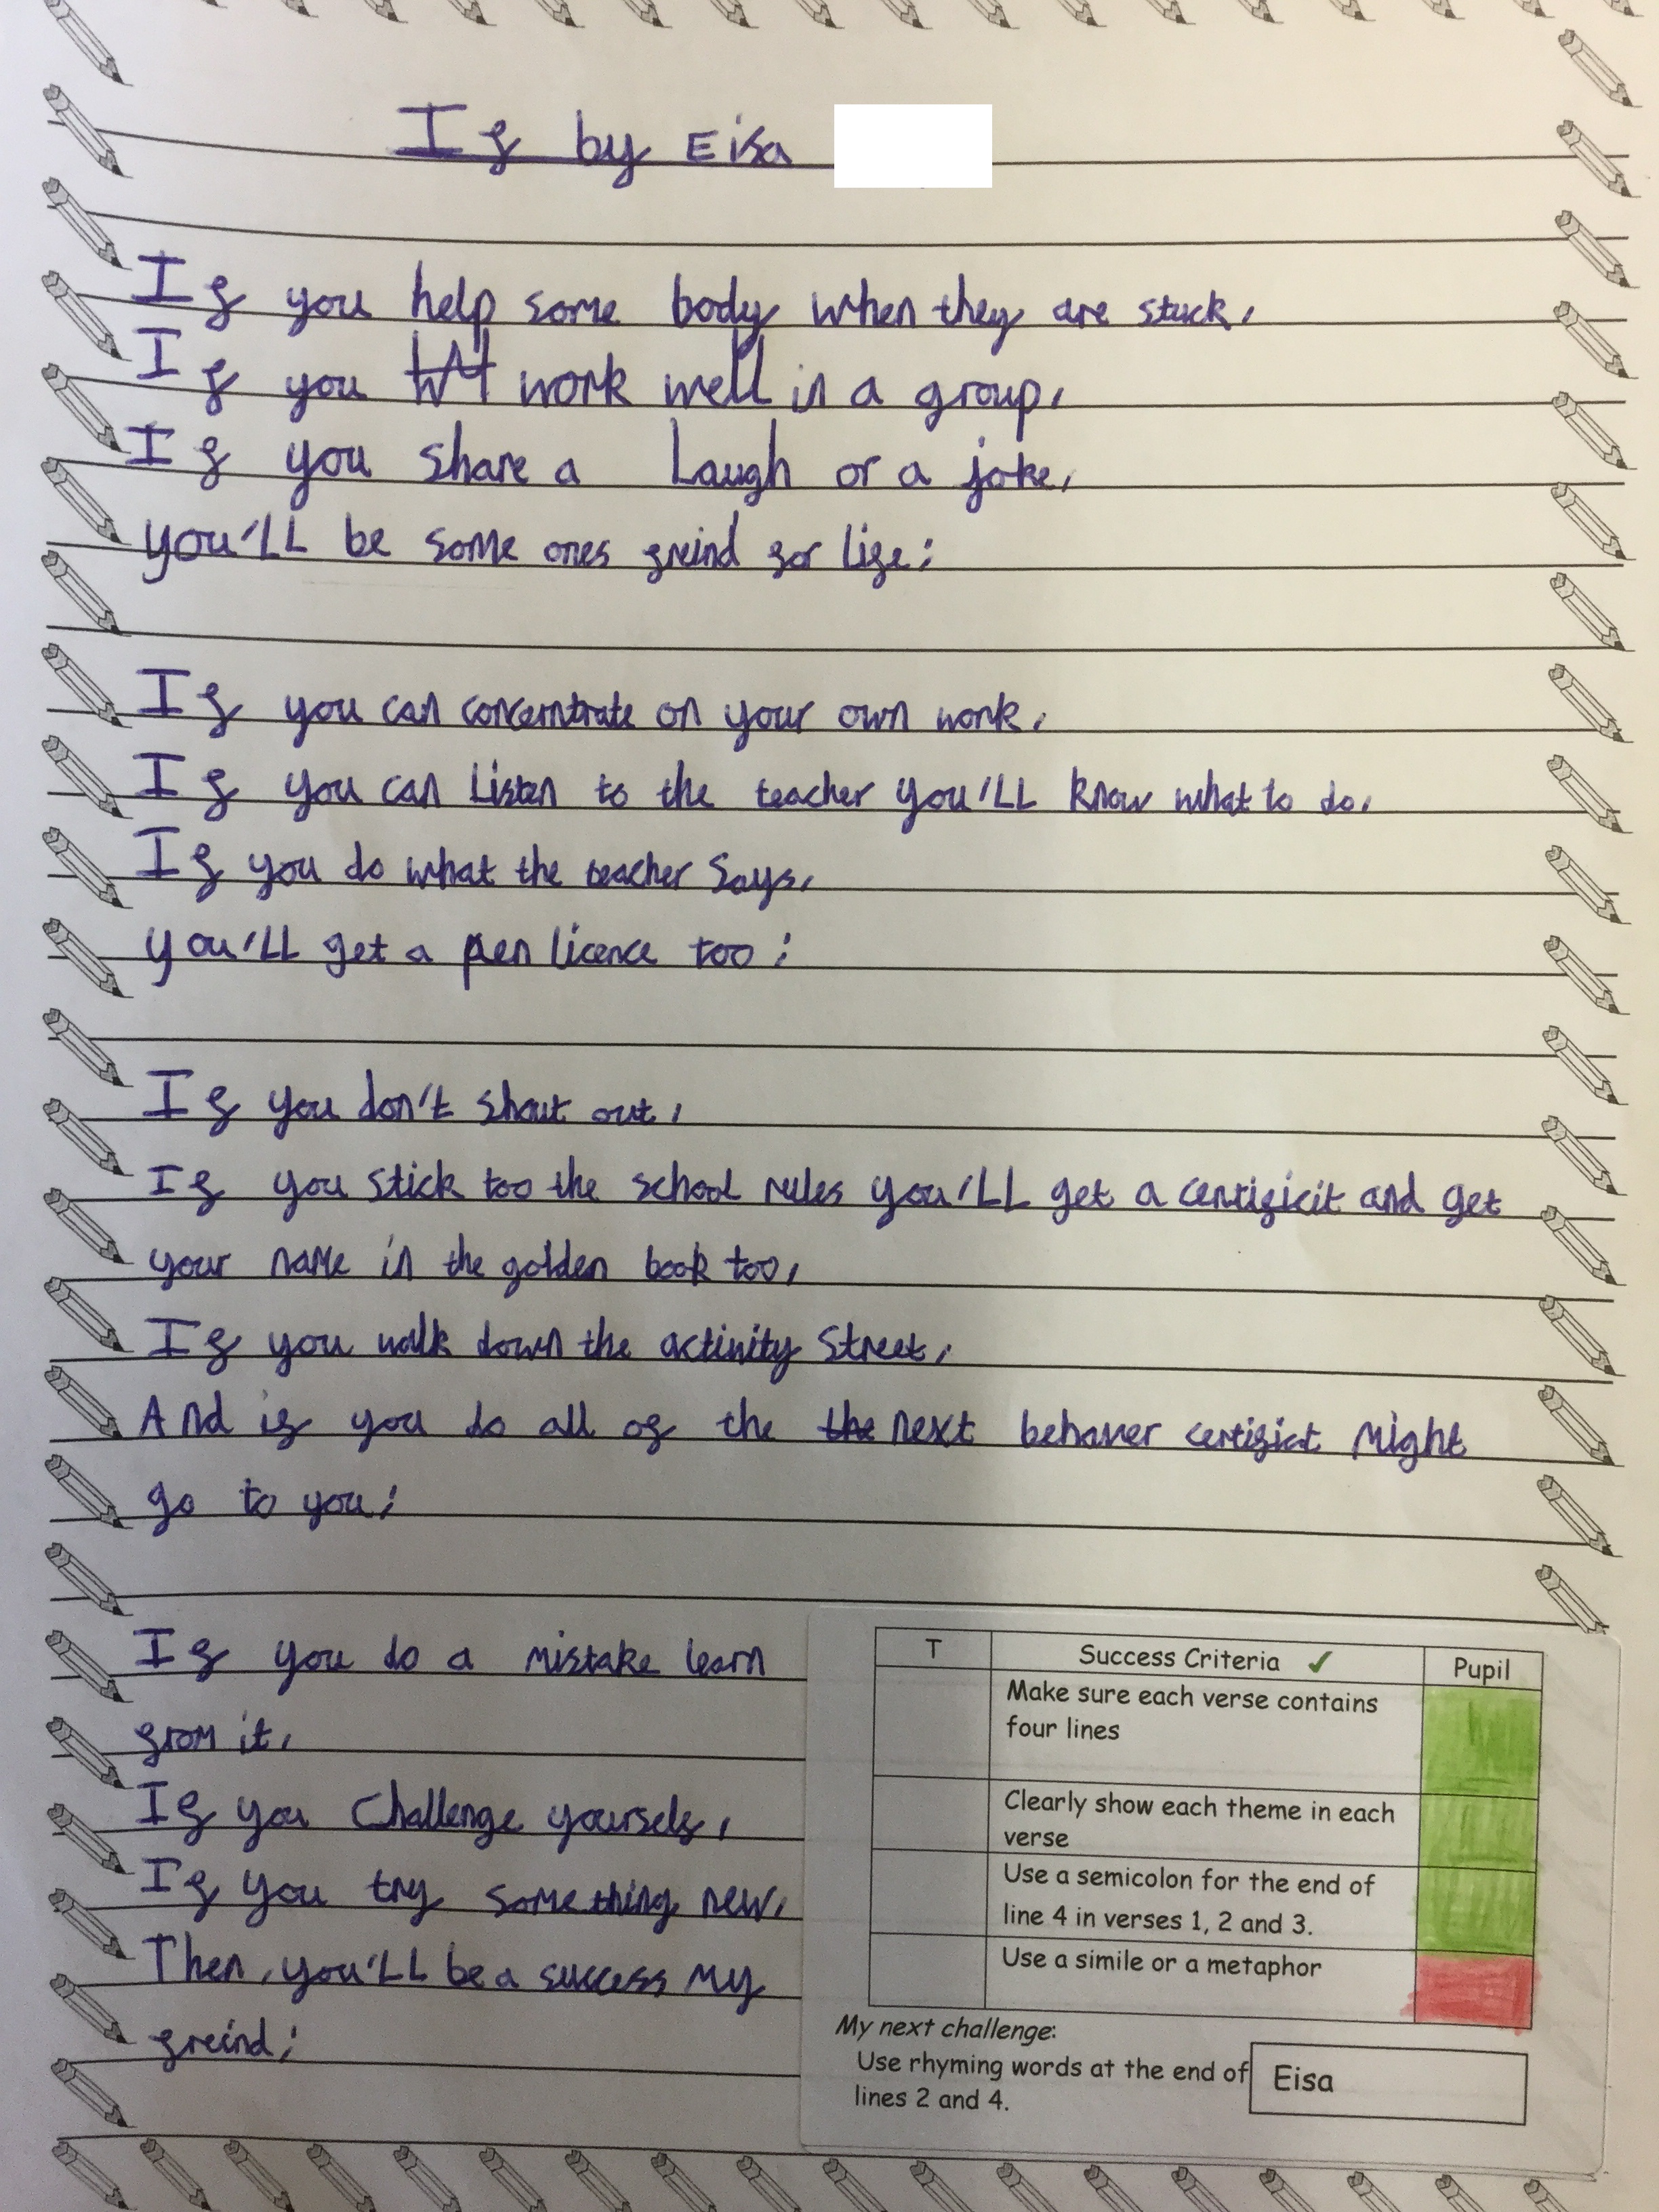 If by Eisa
If you help some body when they are stuck,
If you work well in a group,
If you share a Laugh or a joke,
you'LL be some ones freind for life;
If you can concerntrate on your own work,
If you can Listen to the teacher you'LL know what to do,
If you do what the teacher Says,
you'LL get a pen licence too;
If you don't shout out,
If you stick too the school rules you'LL get a certificit and get
your name in the golden book too,
If you walk down the activity Street,
And if you do all of the the next behaver certifict might
go to you;
If you do a mistake learn
from it,
If you Challenge yourself,
If you try some thing new,
Then, you'LL be a success my
freind;
T Success Criteria ✓ Pupil
Make sure each verse contains
four lines
Clearly show each theme in each
verse
Use a semicolon for the end of
line 4 in verses 1, 2 and 3.
Use a simile or a metaphor
My next challenge:
Use rhyming words at the end of
lines 2 and 4.
Eisa